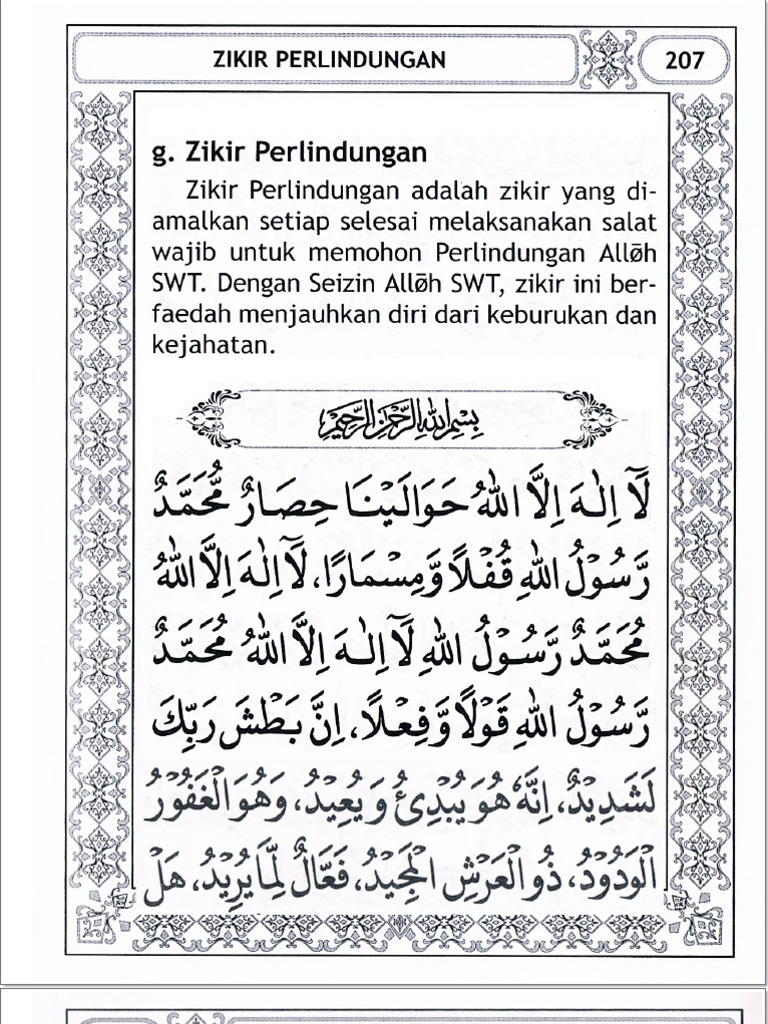 ZIKIR PERLINDUNGAN
207
g. Zikir Perlindungan
Zikir Perlindungan adalah zikir yang di-
amalkan setiap selesai melaksanakan salat
wajib untuk memohon Perlindungan Allōh
SWT. Dengan Seizin Allōh SWT, zikir ini ber-
faedah menjauhkan diri dari keburukan dan
kejahatan.
بِسْمِ اللهِ الرَّحْمٰنِ الرَّحِيْمِ
لَآ اِلٰهَ اِلَّا اللهُ حَوَالَيْنَا حِصَارٌ مُّحَمَّدٌ
رَّسُوْلُ اللهِ قُفْلًا وَّمِسْمَارًا، لَآ اِلٰهَ اِلَّا اللهُ
مُحَمَّدٌ رَّسُوْلُ اللهِ لَآ اِلٰهَ اِلَّا اللهُ مُحَمَّدٌ
رَّسُوْلُ اللهِ قَوْلًا وَّفِعْلًا، اِنَّ بَطْشَ رَبِّكَ
لَشَدِيْدٌ، اِنَّهٗ هُوَ يُبْدِئُ وَيُعِيْدُ، وَهُوَ الْغَفُوْرُ
الْوَدُوْدُ، ذُو الْعَرْشِ الْمَجِيْدُ، فَعَّالٌ لِّمَا يُرِيْدُ، هَلْ